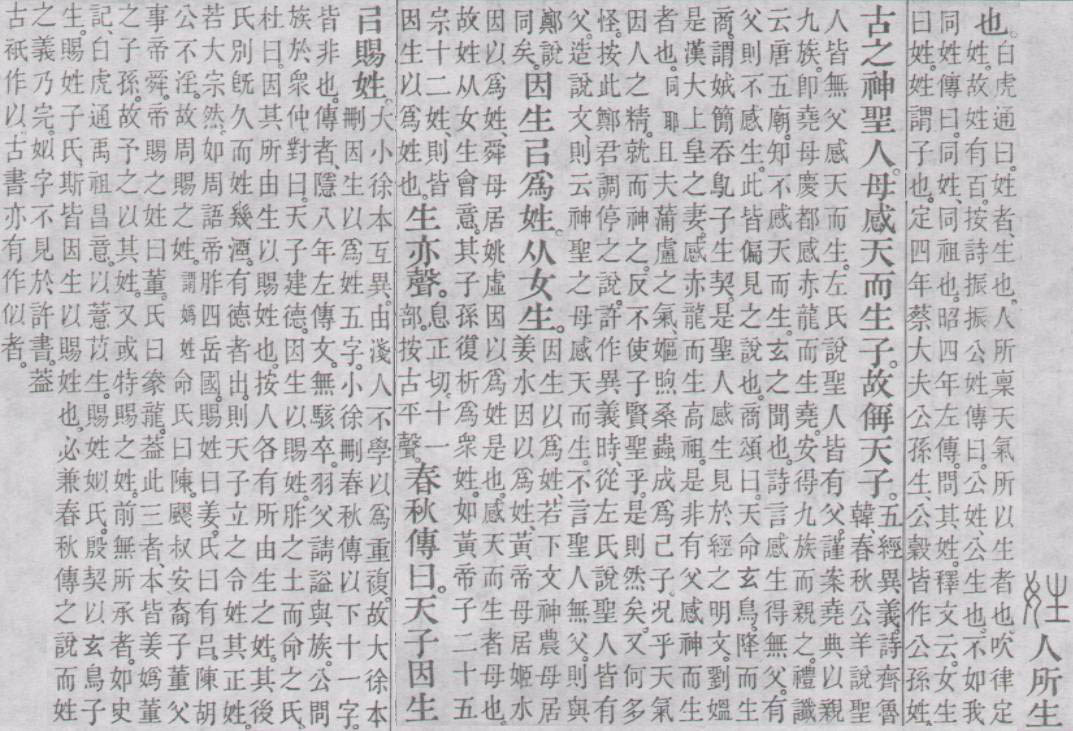 姓 人所生
也。白虎通曰。姓者、生也、人所稟天氣所以生者也、吹律定
姓。故姓有百。按詩振振公姓傳曰。公姓、公生也、不如我
同姓傳曰。同姓、同祖也。昭四年左傳。問其姓。釋文云。女生
曰姓。姓謂子也。定四年蔡大夫公孫生、公穀皆作公孫姓。
古之神聖人。母感天而生子。故偁天子。五經異義。詩齊魯
韓、春秋公羊說聖
人皆無父感天而生。左氏說聖人皆有父。謹案堯典以親
九族。卽堯母慶都感赤龍而生堯。安得九族而親之。禮讖
云唐五廟。知不感天而生。玄之聞也。詩言感生得無父。有
父則不感生。此皆偏見之說也。商頌曰。天命玄鳥。降而生
商。謂娀簡吞鳦子生契。是聖人感生見於經之明文。劉媼
是漢大上皇之妻。感赤龍而生高祖。是非有父感神而生
者也。同耶。且夫蒲盧之氣。嫗煦桑蟲成爲己子。况乎天氣
因人之精。就而神之。反不使子賢聖乎。是則然矣。又何多
怪。按此鄭君調停之說。許作異義時、從左氏說聖人皆有
父。造說文則云神聖之母感天而生。不言聖人無父。則與
鄭說
同矣。因生㠯爲姓。从女生。因生以爲姓。若下文神農母居
姜水因以爲姓。黃帝母居姬水
因以爲姓、舜母居姚虛因以爲姓是也。感天而生者母也。
故姓从女生會意。其子孫復析爲衆姓。如黃帝子二十五
宗十二姓。則皆
因生以爲姓也。生亦聲。息正切。十一
部。按古平聲。春秋傳曰。天子因生
㠯賜姓。大小徐本互異。由淺人不學以爲重複。故大徐本
刪因生以爲姓五字。小徐刪春秋傳以下十一字。
皆非也。傳者、隱八年左傳文。無駭卒。羽父請諡與族。公問
族於衆仲。對曰。天子建德。因生以賜姓。胙之土而命之氏。
杜曰。因其所由生以賜姓也。按人各有所由生之姓。其後
氏別旣久而姓幾湮。有德者出。則天子立之令姓其正姓。
若大宗然。如周語帝胙四岳國。賜姓曰姜。氏曰有呂。陳胡
公不淫。故周賜之姓。謂嬀姓命氏曰陳。飂叔安裔子董父
事帝舜。帝賜之姓曰董。氏曰豢龍。葢此三者、本皆姜嬀董
之子孫。故予之以其姓。又或特賜之姓。前無所承者。如史
記、白虎通禹祖昌意。以薏苡生。賜姓姒氏。殷契以玄鳥子
生。賜姓子氏。斯皆因生以賜姓也。必兼春秋傳之說而姓
之義乃完。姒字不見於許書。葢
古衹作以。古書亦有作似者。